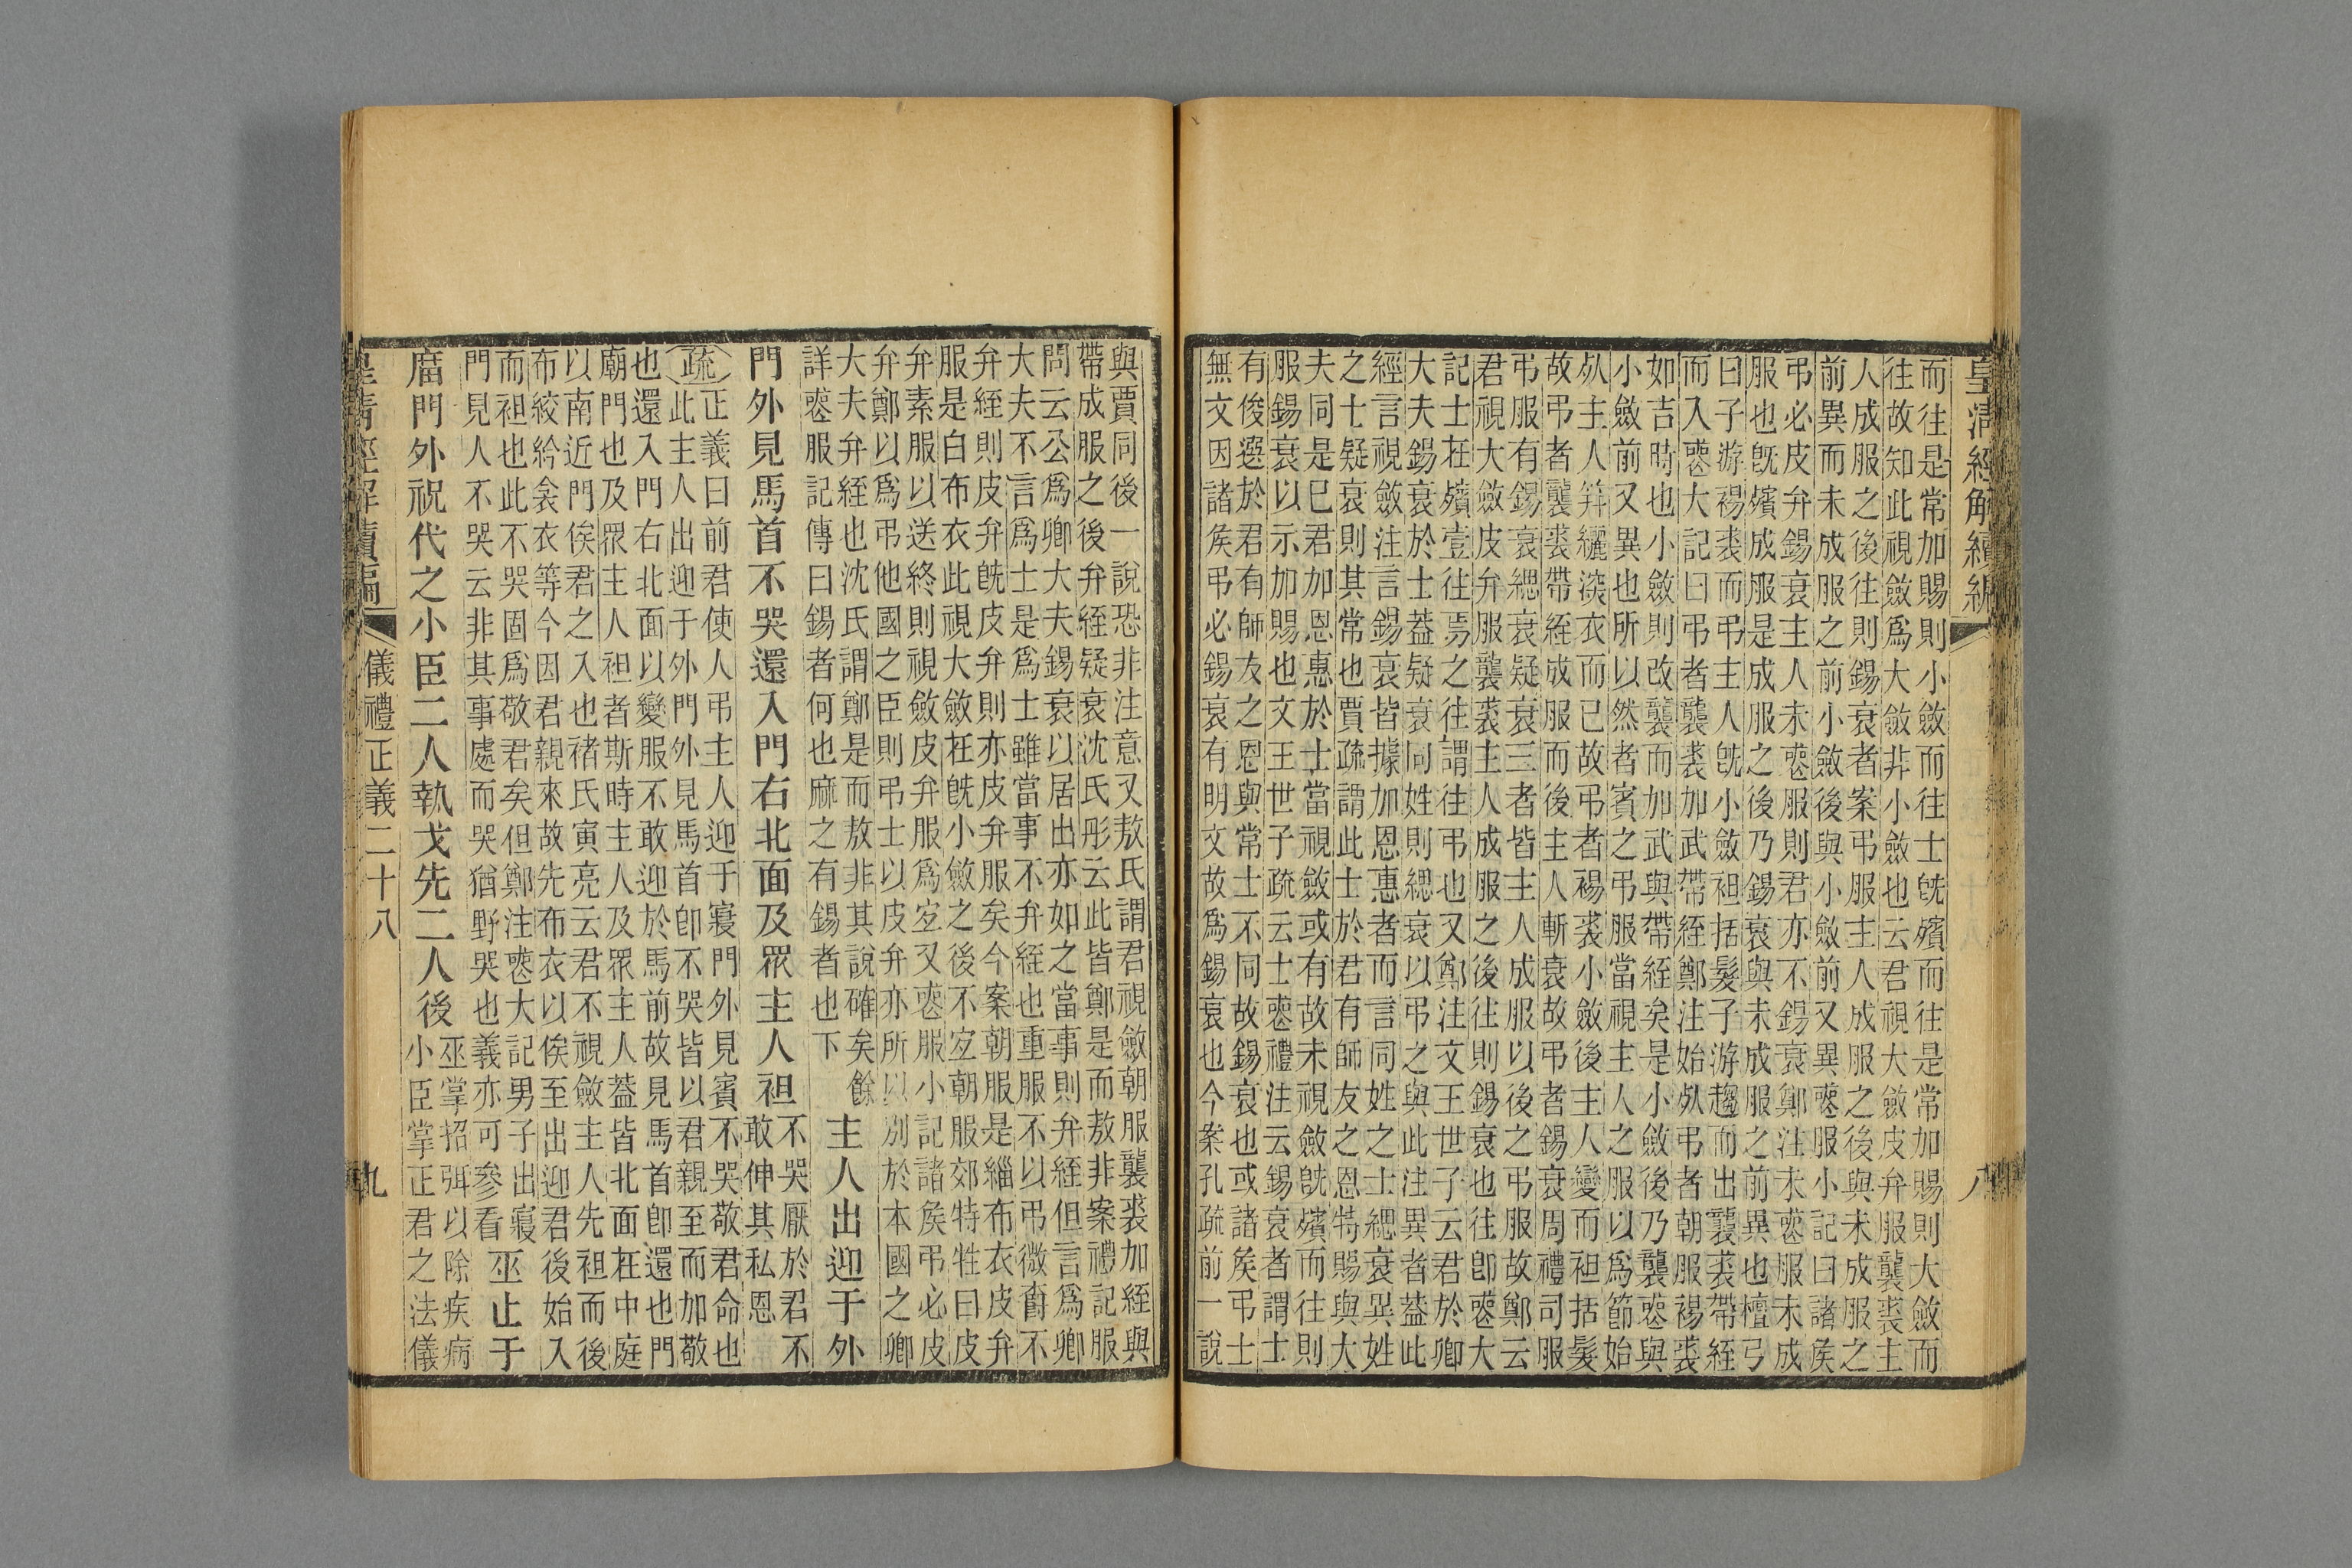 皇清經解續編
八
而往是常加賜則小斂而往士旣殯而往是常加賜則大斂而
往故知此視斂爲大斂非小斂也云君視大斂皮弁服襲裘主
人成服之後往則錫衰者案弔服主人成服之後與未成服之
前異而未成服之前小斂後與小斂前又異䘮服小記曰諸侯
弔必皮弁錫衰主人未䘮服則君亦不錫衰鄭注未䘮服未成
服也旣殯成服是成服之後乃錫衰與未成服之前異也檀弓
曰子游裼裘而弔主人旣小斂袒括髮子游趨而出襲裘帶絰
而入䘮大記曰弔者襲裘加武帶絰鄭注始𣦸弔者朝服裼裘
如吉時也小斂則改襲而加武與帶絰矣是小斂後乃襲䘮與
小斂前又異也所以然者賓之弔服當視主人之服以爲節始
𣦸主人筓纚深衣而已故弔者裼裘小斂後主人變而袒括髮
故弔者襲裘帶絰成服而後主人斬衰故弔者錫衰周禮司服
弔服有錫衰緦衰疑衰三者皆主人成服以後之弔服故鄭云
君視大斂皮弁服襲裘主人成服之後往則錫衰也往卽䘮大
記士在殯壹往焉之往謂往弔也又鄭注文王世子云君於卿
大夫錫衰於士蓋疑衰同姓則緦衰以弔之與此注異者蓋此
經言視斂注言錫衰皆據加恩惠者而言同姓之士緦衰異姓
之士疑衰則其常也賈疏謂此士於君有師友之恩特賜與大
夫同是巳君加恩惠於士當視斂或有故未視斂旣殯而往則
服錫衰以示加賜也文王世子疏云士䘮禮注云錫衰者謂士
有俊選於君有師友之恩與常士不同故錫衰也或諸侯弔士
無文因諸侯弔必錫衰有明文故爲錫衰也今案孔疏前一說
與賈同後一說恐非注意又敖氏謂君視斂朝服襲裘加絰與
帶成服之後弁絰疑衰沈氏彤云此皆鄭是而敖非案禮記服
問云公爲卿大夫錫衰以居出亦如之當事則弁絰但言爲卿
大夫不言爲士是爲士雖當事不弁絰也重服不以弔微爵不
弁絰則皮弁旣皮弁則亦皮弁服矣今案朝服是緇布衣皮弁
服是白布衣此視大斂在旣小斂之後不宜朝服郊特牲曰皮
弁素服以送終則視斂皮弁服爲宜又䘮服小記諸侯弔必皮
弁鄭以爲弔他國之臣則弔士以皮弁亦所以別於本國之卿
大夫弁絰也沈氏謂鄭是而敖非其說確矣餘
詳䘮服記傳曰錫者何也麻之有錫者也下
主人出迎于外
門外見馬首不哭還入門右北面及眾主人袒
不哭厭於君不
敢伸其私恩
疏正義曰前君使人弔主人迎于寢門外見賓不哭敬君命也
此主人出迎于外門外見馬首卽不哭皆以君親至而加敬
也還入門右北面以變服不敢迎於馬前故見馬首卽還也門
廟門也及眾主人袒者斯時主人及眾主人蓋皆北面在中庭
以南近門俟君之入也褚氏寅亮云君不視斂主人先袒而後
布絞紟衾衣等今因君親來故先布衣以俟至出迎君後始入
而袒也此不哭固爲敬君矣但鄭注䘮大記男子出寢
門見人不哭云非其事處而哭猶野哭也義亦可參看
巫止于
庿門外祝代之小臣二人執戈先二人後
巫掌招弭以除疾病
小臣掌正君之法儀
皇清經解續編
儀禮正義二十八
九